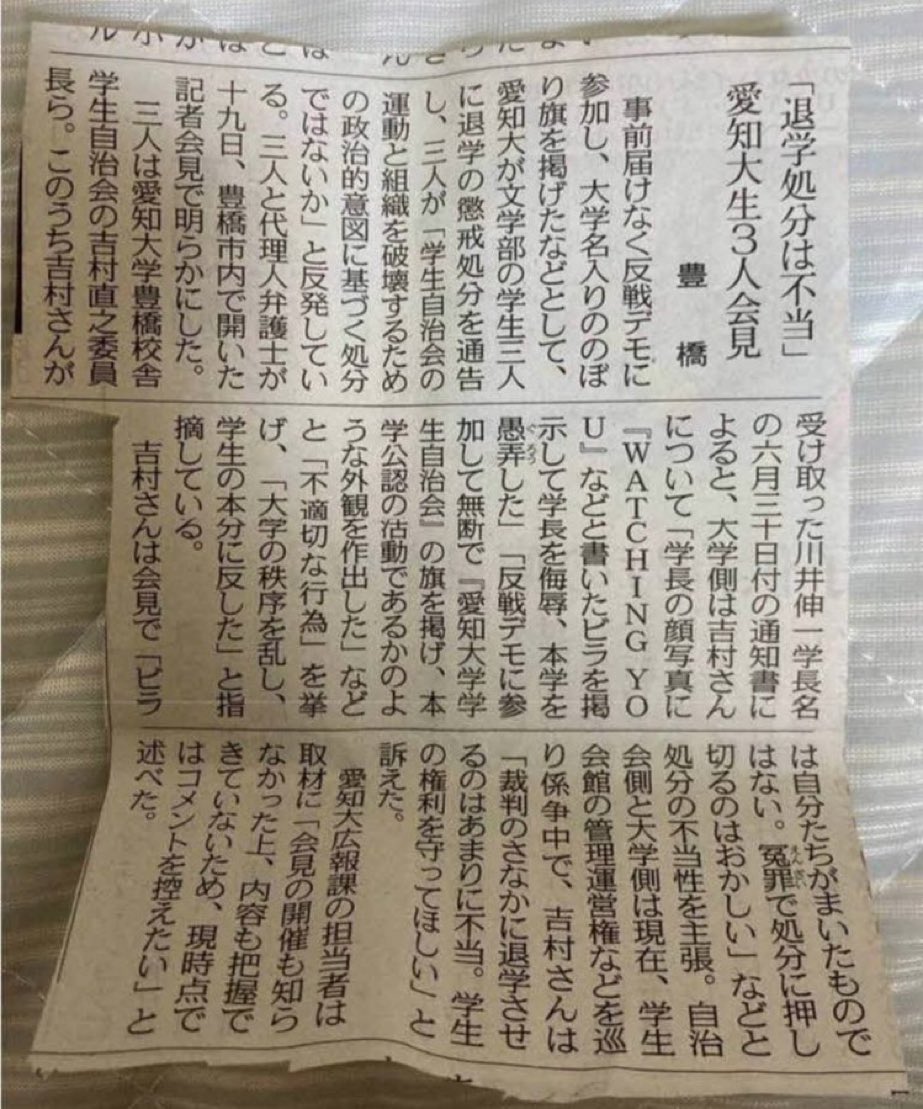 「退学処分は不当」
愛知大生3人会見
豊橋
事前届けなく反戦デモに
参加し、大学名入りののぼ
り旗を掲げたなどとして、
愛知大が文学部の学生三人
に退学の懲戒処分を通告
し、三人が「学生自治会の
運動と組織を破壊するため
の政治的意図に基づく処分
ではないか」と反発してい
る。三人と代理人弁護士が
十九日、豊橋市内で開いた
記者会見で明らかにした。
三人は愛知大学豊橋校舎
学生自治会の吉村直之委員
長ら。このうち吉村さんが
受け取った川井伸一学長名
の六月三十日付の通知書に
よると、大学側は吉村さん
について「学長の顔写真に
『WATCHING YO
U』などと書いたビラを掲
示して学長を侮辱、本学を
愚弄した」「反戦デモに参
加して無断で『愛知大学学
生自治会』の旗を掲げ、本
学公認の活動であるかのよ
うな外観を作出した」など
と「不適切な行為」を挙
げ、「大学の秩序を乱し、
学生の本分に反した」と指
摘している。
吉村さんは会見で「ビラ
は自分たちがまいたもので
はない。冤罪で処分に押し
切るのはおかしい」などと
処分の不当性を主張。自治
会側と大学側は現在、学生
会館の管理運営権などを巡
り係争中で、吉村さんは
「裁判のさなかに退学させ
るのはあまりに不当。学生
の権利を守ってほしい」と
訴えた。
愛知大広報課の担当者は
取材に「会見の開催も知ら
なかった上、内容も把握で
きていないため、現時点で
はコメントを控えたい」と
述べた。